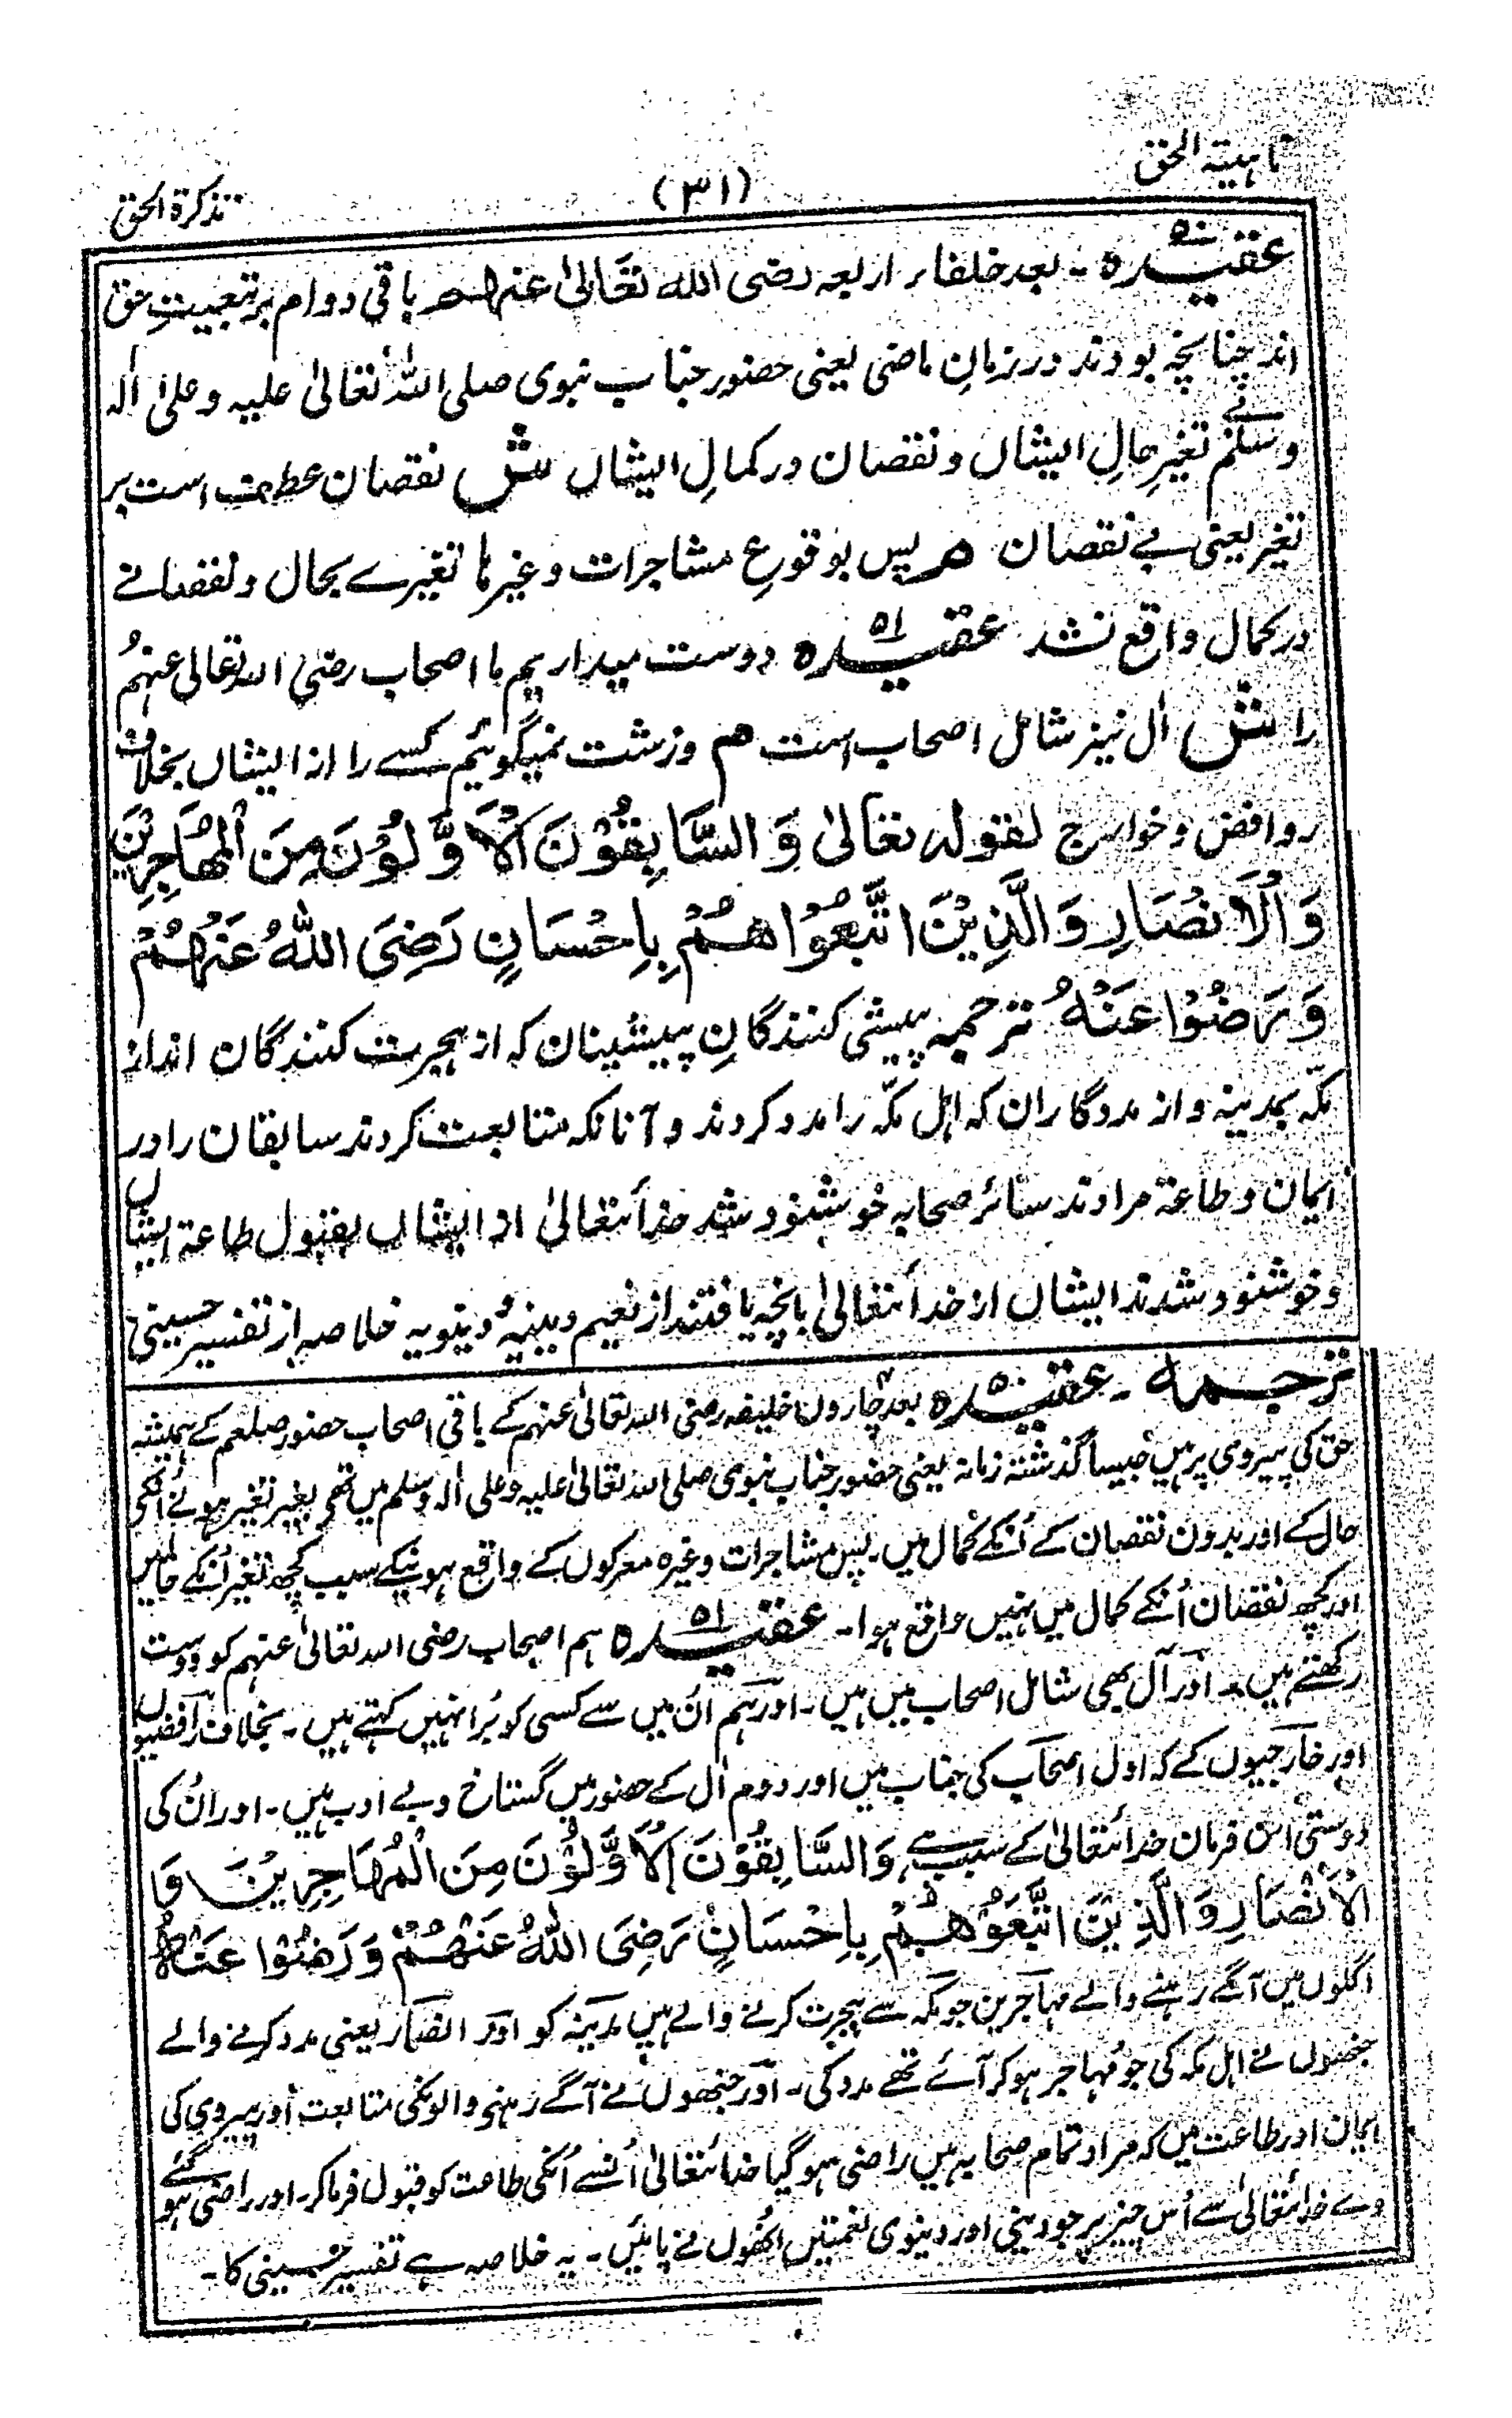 ماہیۃ الحق
(۳۱)
تذکرۃ الحق
عقیدہ ۵۰ - بعد خلفاء اربعہ رضی اللہ تعالیٰ عنہم باقی دوام بر تبعیتِ حق
اند چنانچہ بودند در زمانِ ماضی یعنی حضور جناب نبوی صلی اللہ تعالیٰ علیہ وعلیٰ آلہ
وسلم بے تغیرِ حالِ ایشاں و نقصان در کمالِ ایشاں ش نقصان عطف است بر
تغیر یعنی بے نقصان هم پس بوقوعِ مشاجرات وغیرہا تغیرے بحال و نقصانے
در کمال واقع نشد عقیدہ ۵۱ دوست میداریم ما اصحاب رضی اللہ تعالیٰ عنہم
را ش آل نیز شامل اصحاب است هم وزشت نمیگوئیم کسے را از ایشاں بخلاف
روافض و خوارج لقولہ تعالیٰ وَ السَّابِقُوْنَ الْاَوَّلُوْنَ مِنَ الْمُهَاجِرِيْنَ
وَ الْاَنْصَارِ وَ الَّذِيْنَ اتَّبَعُوْاهُمْ بِاِحْسَانٍ رَضِىَ اللهُ عَنْهُمْ
وَ رَضُوْا عَنْهُ ترجمہ پیشی کنندگانِ پیشینان کہ از ہجرت کنندگان اند از
مکّہ بمدینہ و از مددگاران کہ اہل مکّہ را مدد کردند و آنانکہ متابعت کردند سابقان را در
ایمان و طاعۃ مرادند سائر صحابہ خوشنود شد خدائتعالیٰ از ایشاں بقبول طاعۃ ایشاں
و خوشنود شدند ایشاں از خدائتعالیٰ بانچہ یافتند از نعیم دینیہ و دنیویہ خلاصہ از تفسیر حسینی
ترجمہ - عقیدہ ۵۰ بعد چاروں خلیفہ رضی اللہ تعالیٰ عنہم کے باقی اصحاب حضور صلعم کے ہمیشہ
حق کی پیروی پر ہیں جیسا گذشتہ زمانہ یعنی حضور جناب نبوی صلی اللہ تعالیٰ علیہ وعلی آلہ وسلم میں تھی بغیر تغیر ہونے اُنکی
حال کے اور بدون نقصان کے اُنکے کمال میں - پس مشاجرات وغیرہ معرکوں کے واقع ہونیکے سبب کچھ تغیر اُنکے حالمیں
اور کچھ نقصان اُنکے کمال میں نہیں واقع ہوا - عقیدہ ۵۱ ہم اصحاب رضی اللہ تعالیٰ عنہم کو دوست
رکھتے ہیں - اور آل بھی شامل اصحاب میں ہیں - اور ہم اُن میں سے کسی کو بُرا نہیں کہتے ہیں - بخلاف رافضیوں
اور خارجیوں کے کہ اول اصحاب کی جناب میں اور دوم آل کے حضور میں گستاخ و بے ادب ہیں - اور اُن کی
دوستی اس فرمان خدائتعالیٰ کے سبب سے ہے وَ السَّابِقُوْنَ الْاَوَّلُوْنَ مِنَ الْمُهَاجِرِيْنَ وَ
الْاَنْصَارِ وَ الَّذِيْنَ اتَّبَعُوْهُمْ بِاِحْسَانٍ رَضِىَ اللهُ عَنْهُمْ وَ رَضُوْا عَنْهُ
اگلوں میں آگے رہنے والے مہاجرین جو مکہ سے ہجرت کرنے والے ہیں مدینہ کو اور انصار یعنی مدد کرنے والے
جنھوں نے اہل مکہ کی جو مُہاجر ہو کر آئے تھے مدد کی - اور جنھوں نے آگے رہنے والونکی متابعت اور پیروی کی
ایمان اور طاعت میں کہ مراد تمام صحابہ ہیں راضی ہو گیا خدائتعالیٰ اُنسے اُنکی طاعت کو قبول فرما کر - اور راضی ہو گئے
وے خدائتعالیٰ سے اُس چیز پر جو دینی اور دنیوی نعمتیں اُنھوں نے پائیں - یہ خلاصہ ہے تفسیر حسینی کا -